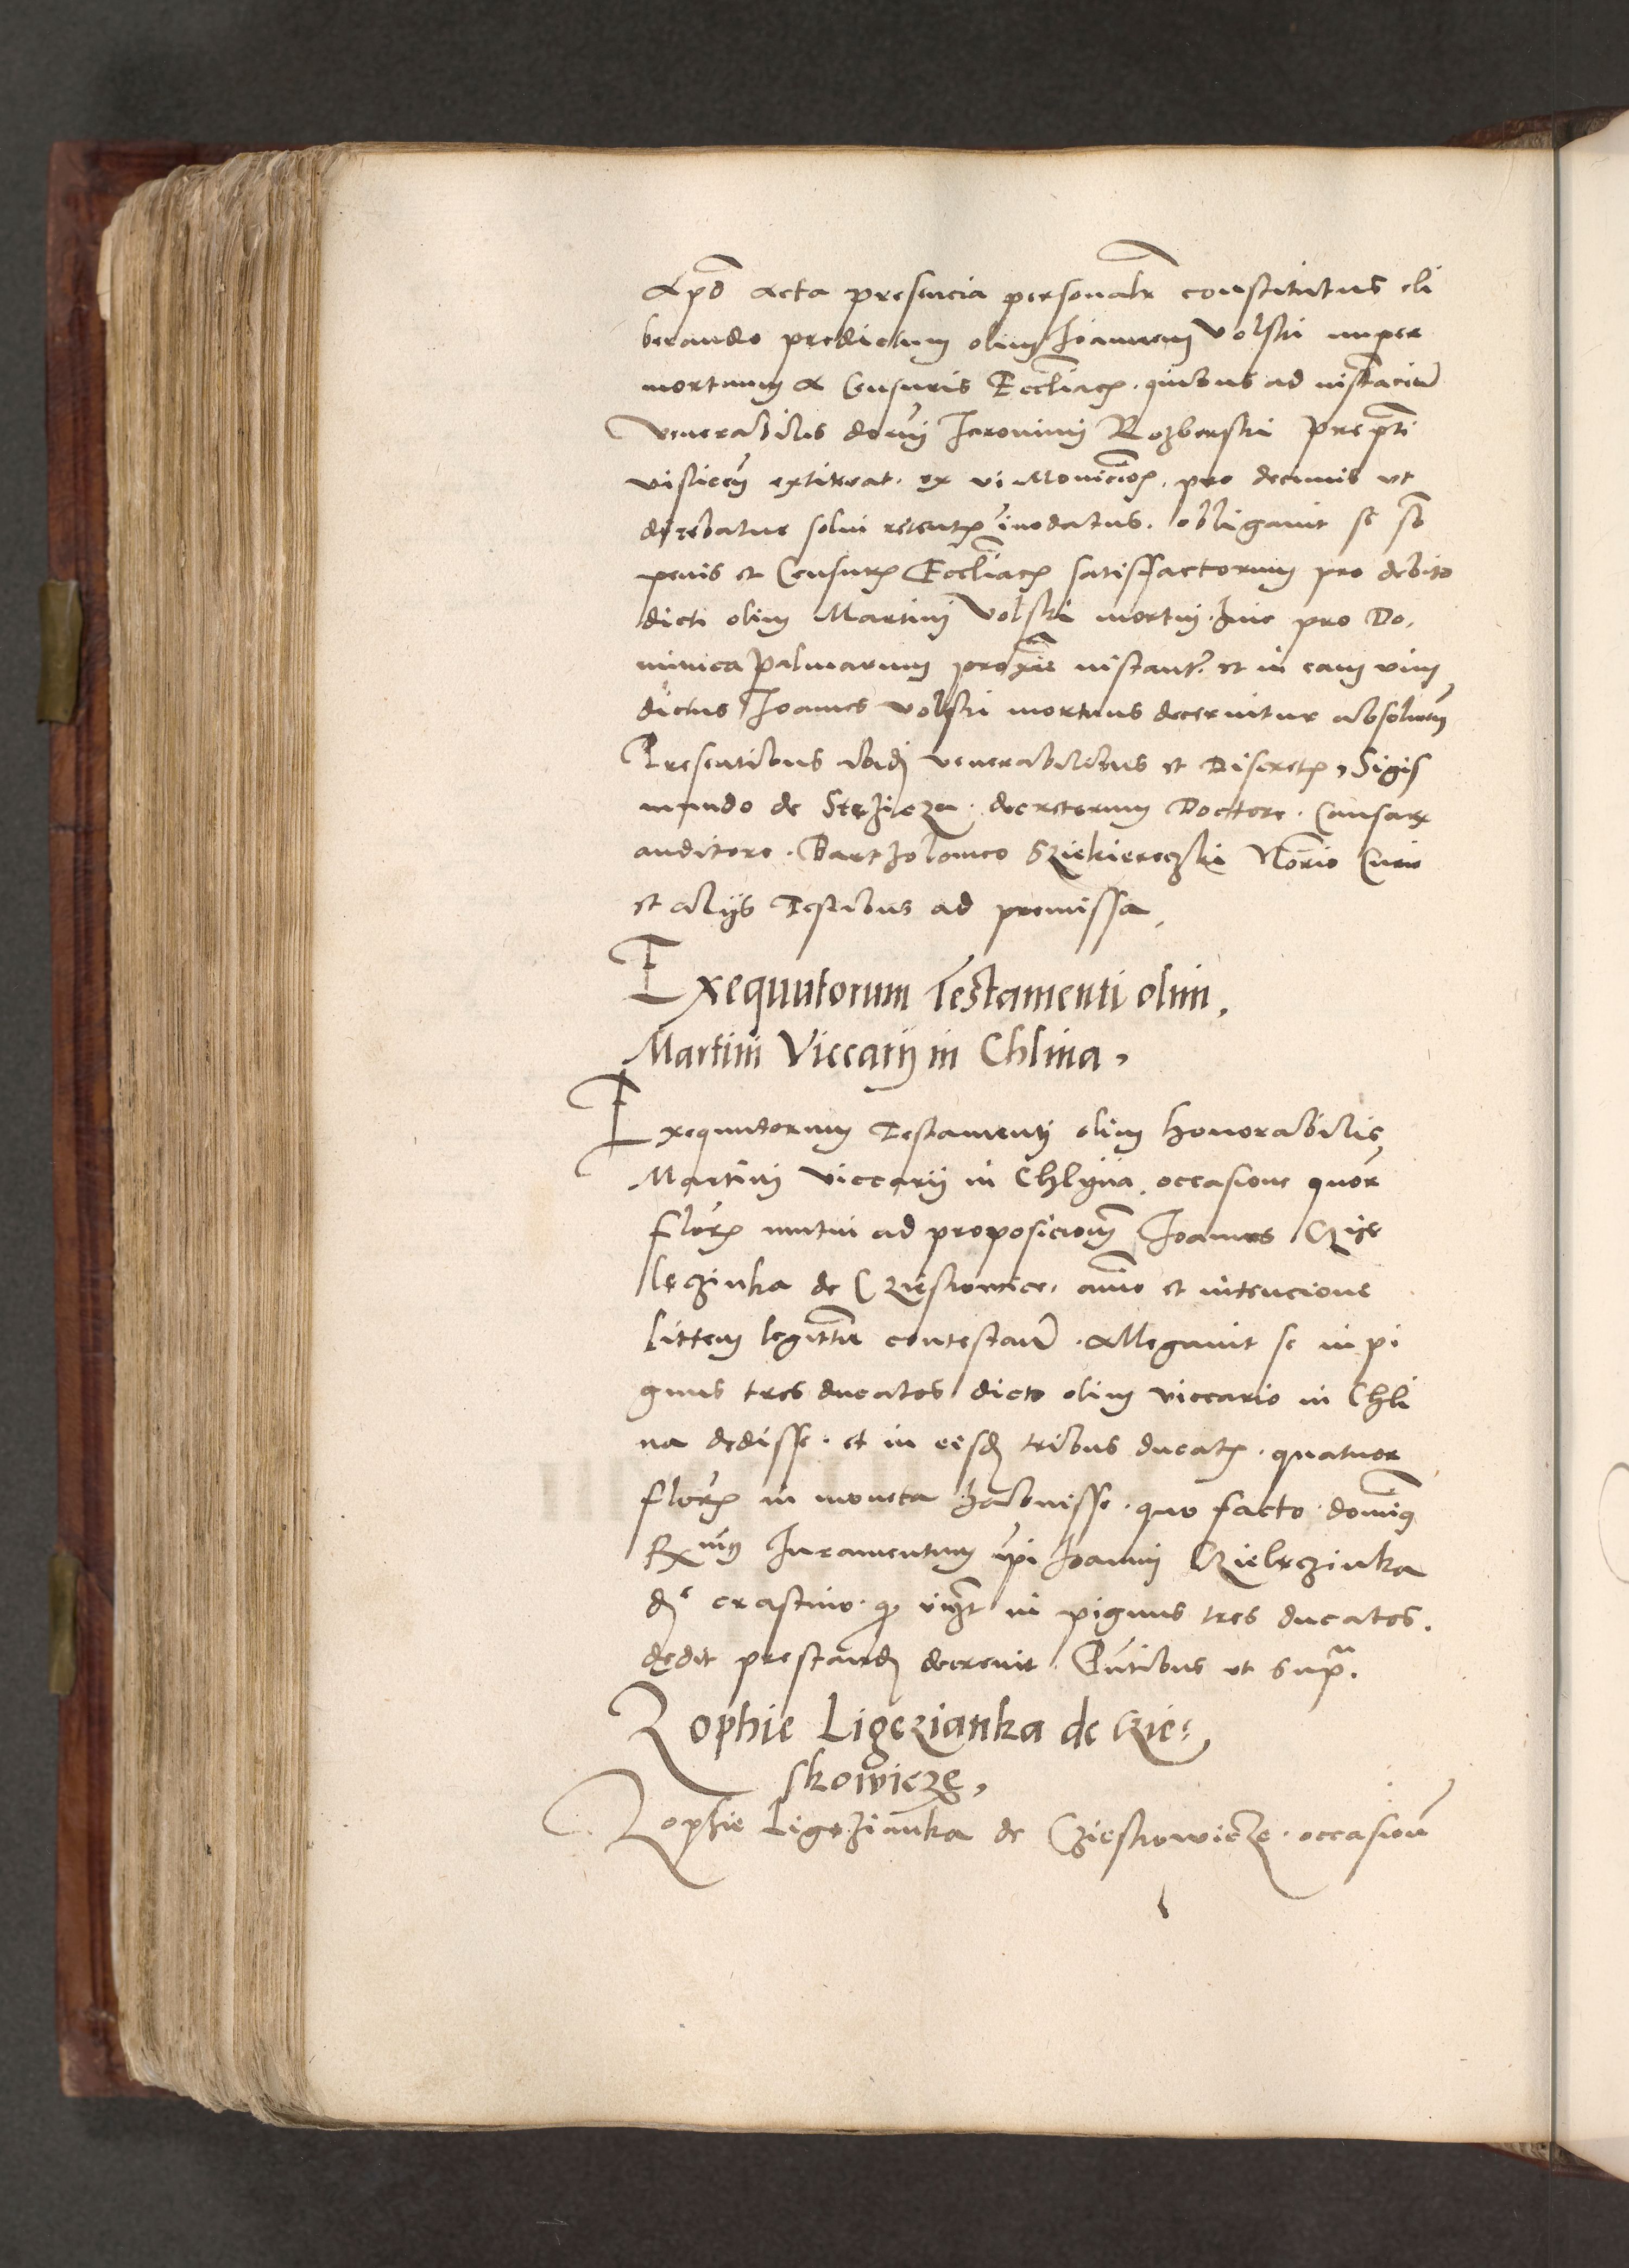 Apd acta presencia personalr constitutus eli
berando predictum olim Joannem Volski nuper
mortuum A Censuris Ecclliacȝ. quibus ad instaciam
Venerabilis domi Jeronimi Rozborski prepti
visticem extiterat. ex vi Monicioȝ. pro decimis ut
dicebatur solui retentȝ inodatus. obligauit se sb
penis et Censurȝ Eccliacȝ satisfactorum pro debito
dicti olim Martini Volski mortui. hinc pro Do,
minica Palmarum proxie instant. et in eam vim
dictus Joannes Volski mortuus decernitur absolutum
Presentibus ibidȝ venerabilibus et Discretȝ, Sigis
mundo de Stęzicza. decretorum Doctore. Causarȝ
auditore. Bartholomeo Sziekieroczki Norio Curie
et alijs Testibus ad premissa,
Exequutorum Testamenti olim,
Martini Viccarij in Chlina,
Exequutorum Testamenti olim honorabilis
Martini viccarij in Chlyna. occasione quor
florȝ mutui ad proposicionem Joannes Czie
lęczinka de Cziesowice. animo et intencione
littem legittime contestan. Allegauit se in pi
gnus tres ducatos dicto olim viccario in Chli
na dedisse. et in eisdȝ tribus ducatȝ. quatuor
florȝ in moneta habuisse. quo facto dominus
Rxmus Juramentum ipi Joanni Czielęczinka
die crastino. qȝ in pignus tres ducatos.
dędit prestandȝ decreuit. Pntibus ut supra.
Zophie Ligęzianka de Czie,
skowicze,
Zophie Ligęzianka de Czieskowicze. occasione